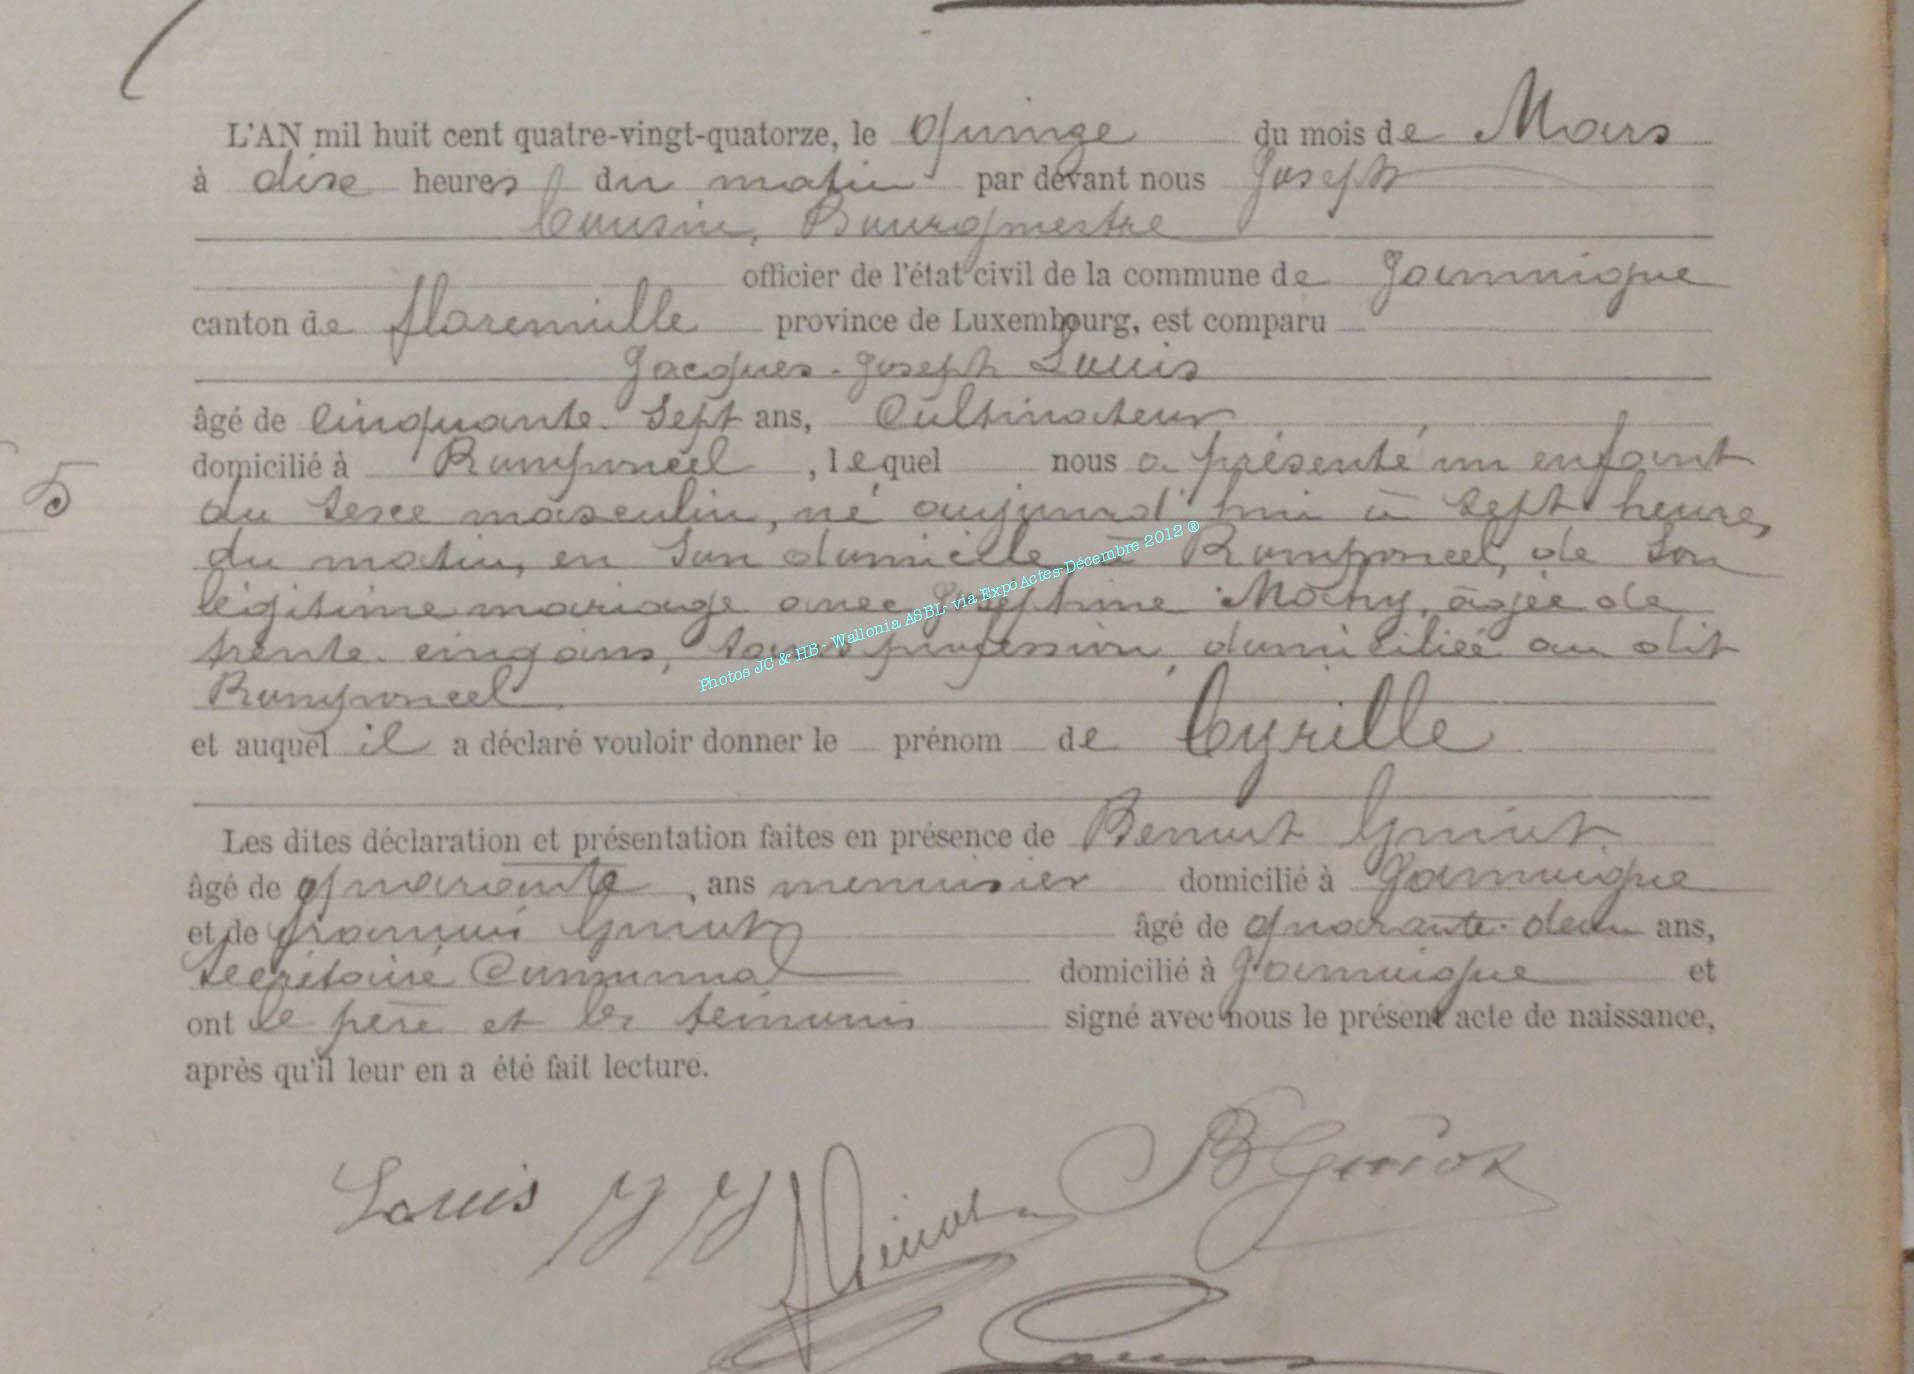 L'AN mil huit cent quatre-vingt-quatorze, le quinze du mois de Mars
à dixe heures du matin par devant nous Joseph
Cousin, Bourgmestre
officier de l'état civil de la commune de Jamoigne
canton de florenville province de Luxembourg, est comparu
Jacques-Joseph Louis
âgé de cinquante-sept ans, Cultivateur
domicilié à Romponcel, lequel nous a présenté un enfant
5
du sexe masculin, né aujourd'hui à sept heures
du matin, en son domicile à Romponcel, de son
légitime mariage avec Joséphine Mothy, âgée de
trente-cinq ans, sans profession, domiciliée au dit
Romponcel
Photos JC & HB - Wallonia ASBL- via ExpoActes-Décembre 2012 ®
et auquel il a déclaré vouloir donner le prénom de Cyrille
Les dites déclaration et présentation faites en présence de Benoit Guiot
âgé de quarante, ans menuisier domicilié à Jamoigne
et de françois Guiot âgé de quarante-deux ans,
Secrétaire Communal domicilié à Jamoigne et
ont le père et les témoins signé avec nous le présent acte de naissance,
après qu'il leur en a été fait lecture.
Louis JJ
Guiot B Guiot
Cousin